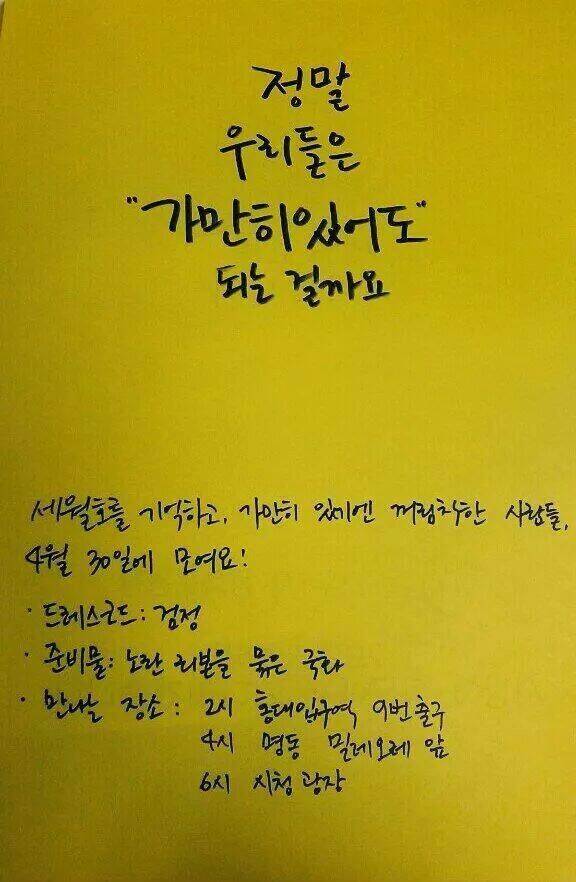 정말
우리들은
"가만히있어도"
되는 걸까요
세월호를 기억하고, 가만히 있기엔 꺼림칙한 사람들,
4월 30일에 모여요!
· 드레스코드 : 검정
· 준비물 : 노란 리본을 묶은 국화
· 만나는 장소 : 2시 홍대입구역 9번출구
4시 명동 밀레오레 앞
6시 시청광장